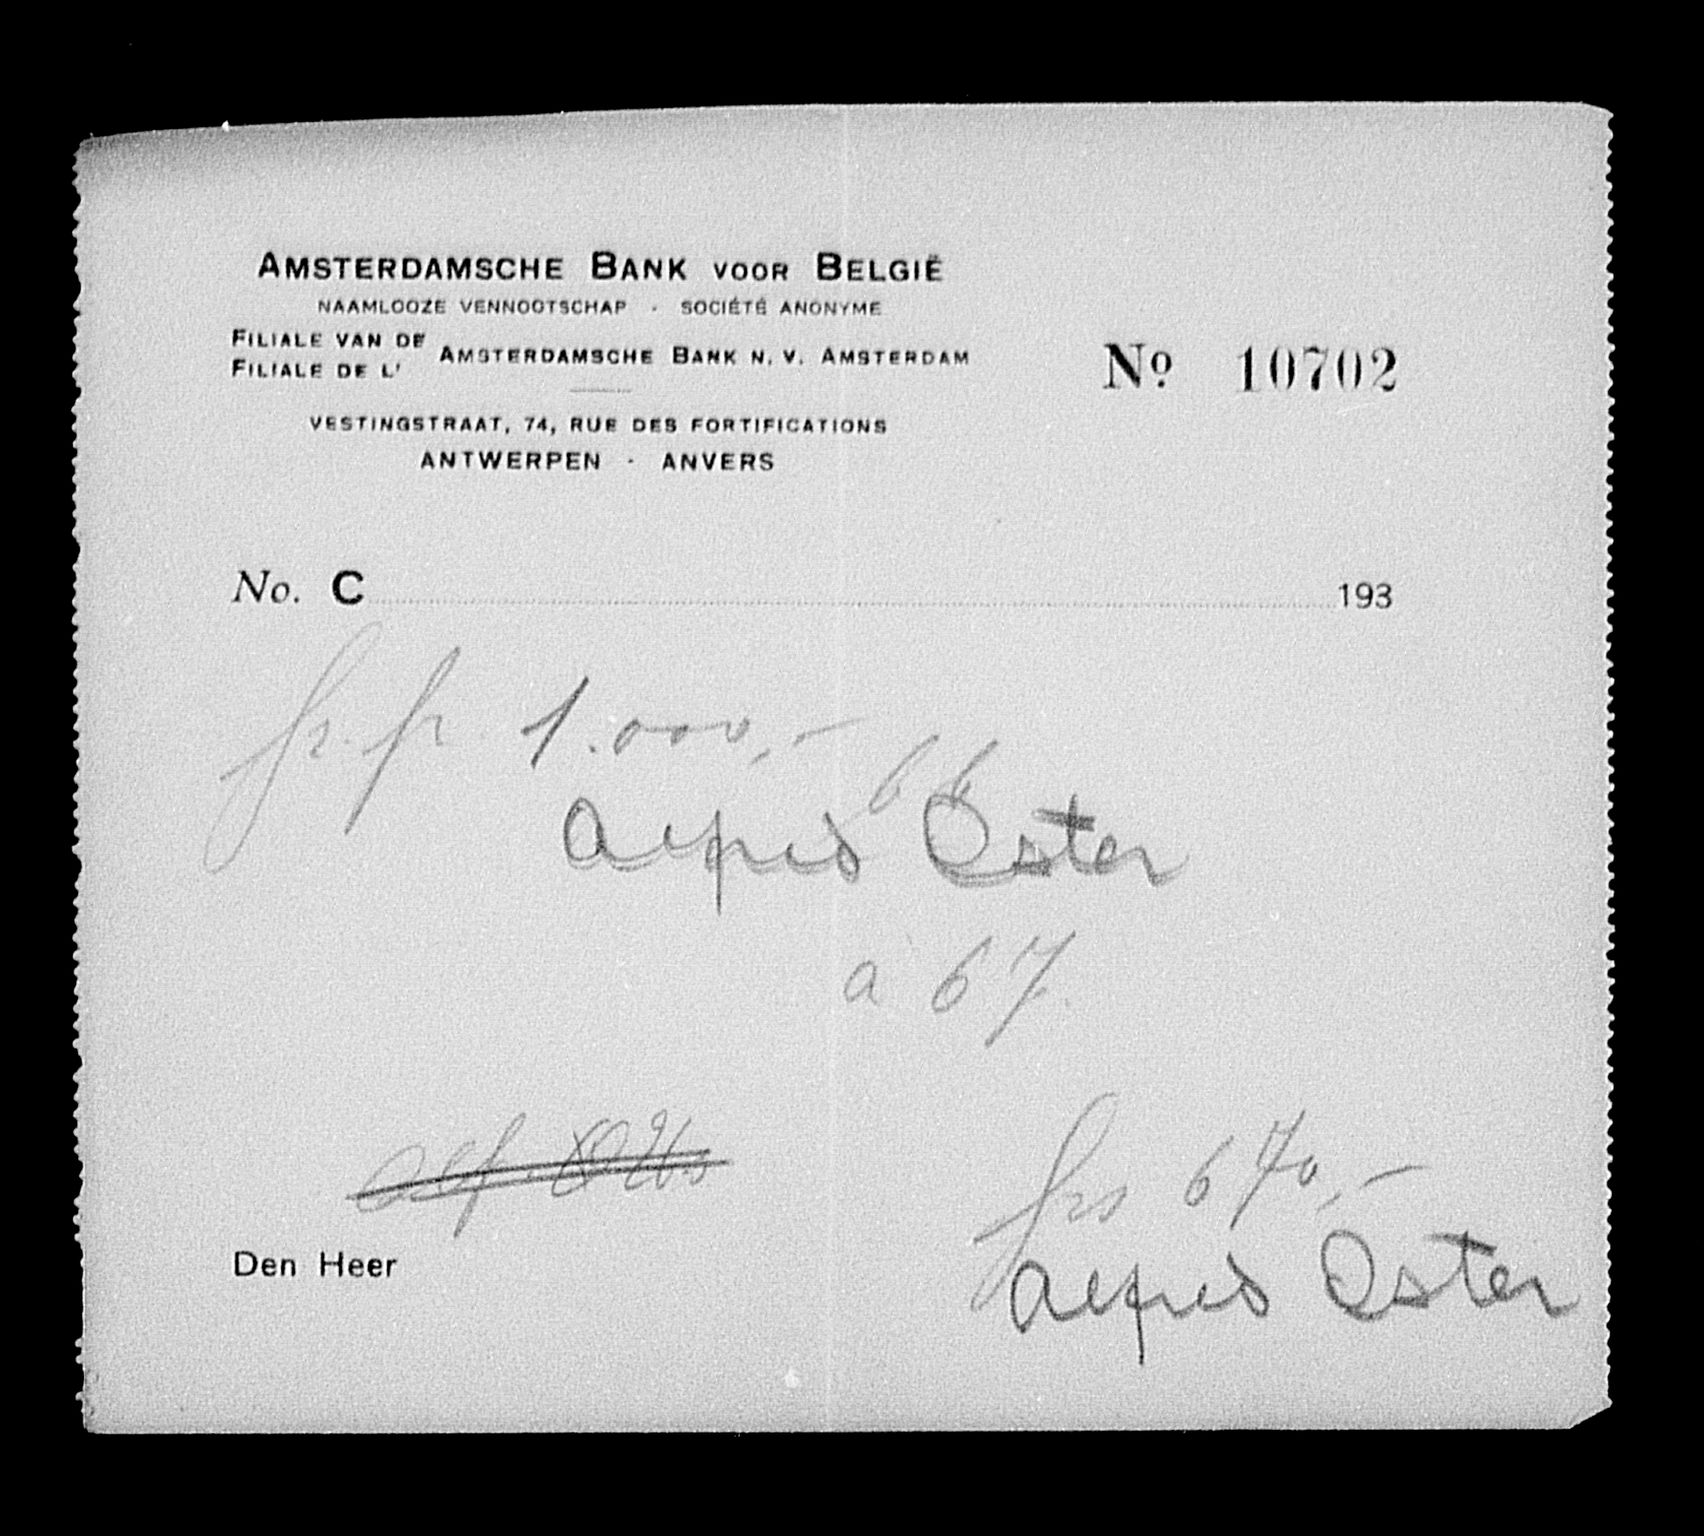 AMSTERDAMSCHE BANK VOOR BELGIË
NAAMLOOZE VENNOOTSCHAP · SOCIÉTÉ ANONYME
FILIALE VAN DE
FILIALE DE L'
AMSTERDAMSCHE BANK N. V. AMSTERDAM
VESTINGSTRAAT, 74, RUE DES FORTIFICATIONS
ANTWERPEN · ANVERS
Nº 10702
No. C 193
fr. fr. 1.000,-
66
Alfred Oster
à 67.
frs 670,-
Alfred Oster
Den Heer